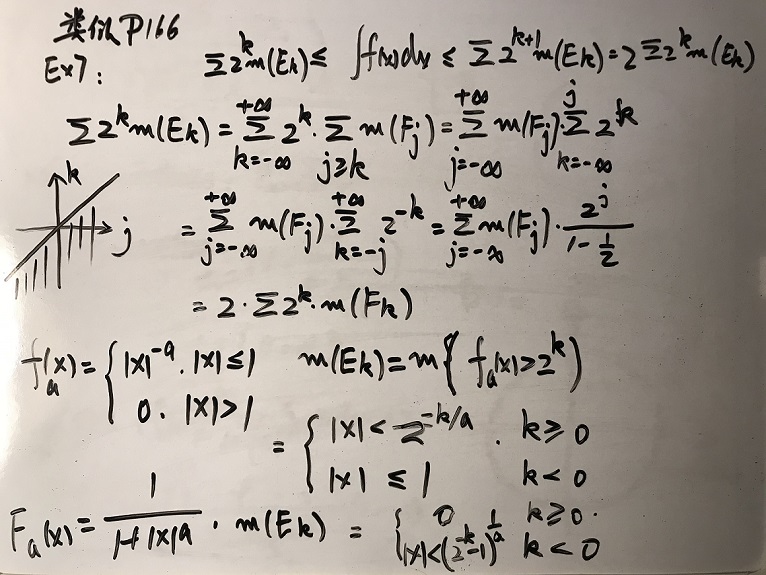 类似P166
Ex7: Σ2^k m(Ek) ≤ ∫f(x)dx ≤ Σ2^{k+1} m(Ek) = 2Σ2^k m(Ek)
Σ2^k m(Ek) = Σ_{k=-∞}^{+∞} 2^k · Σ_{j≥k} m(Fj) = Σ_{j=-∞}^{+∞} m(Fj) · Σ_{k=-∞}^{j} 2^k
k
j
= Σ_{j=-∞}^{+∞} m(Fj) · Σ_{k=-j}^{+∞} 2^{-k} = Σ_{j=-∞}^{+∞} m(Fj) · 2^j/(1-1/2)
= 2 · Σ2^k · m(Fk)
f_a(x) = { |x|^{-a}, |x| ≤ 1 m(Ek) = m{ f_a(x) > 2^k }
0, |x| > 1
= { |x| < 2^{-k/a}, k ≥ 0
|x| ≤ 1 k < 0
F_a(x) = 1/(1+|x|^a), m(Ek) = { 0 k ≥ 0.
|x| < (2^{-k}-1)^{1/a} k < 0